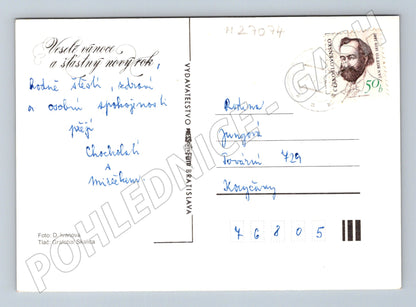 Veselé vánoce
a šťastný nový rok,
hodně štěstí, zdraví
a osobní spokojnosti
přejí
Chocholatí
a
Foto: D. Ivanova
Tlač: Grafobal Skalica
VYDAVATEĽSTVO BRATISLAVA
1127974
ČESKOSLOVENSKO
50h
Rodina
Jungová
Tovární 729
Koryčany
76805
POHLEDNICE - GASH